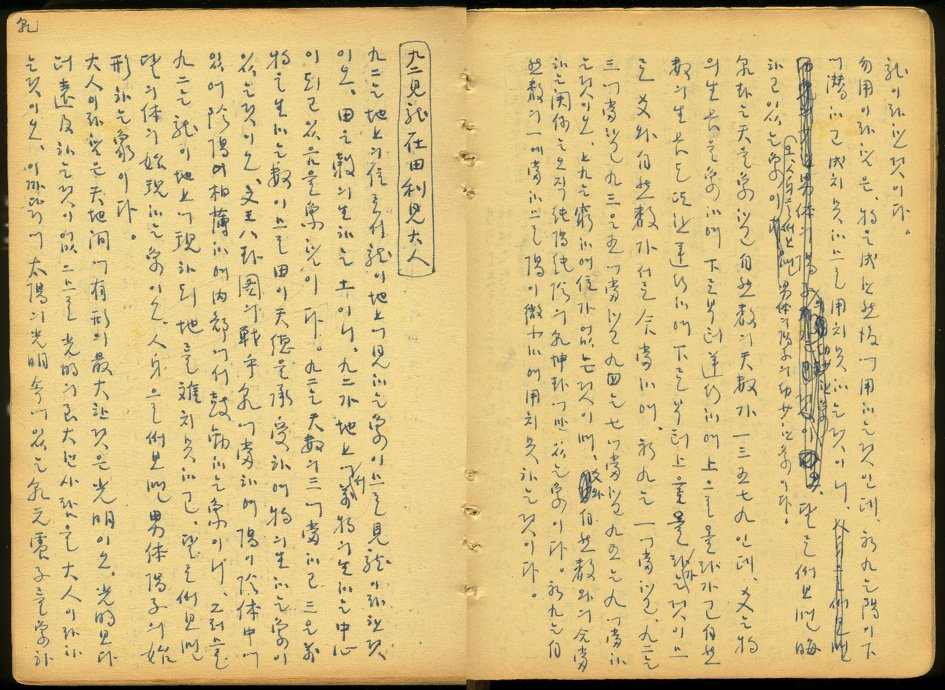 龍이라 한 것이다.
勿用이라 함은, 物을 成한 然後에 用하는 것인데, 初九는 陽이 下
에 潛하고 成치 못하므로 用치 못하는 것이니,
달로 例하면 晦
하고 있는 象이며, 사람으로 例하면 男体의 陽子의 幼少한 象이다.
乾卦는 天을 象하고 自然数의 天数가 一三五七九인데, 爻는 物
의 生長을 象하여 下로부터 逆行하여 上으로 올라가고 自然
数의 生長도 또한 逆行하여 下로부터 上으로 올라가는 것이므
로 爻와 自然数가 서로 合当하여, 初九는 一에 当하고, 九二는
三에 当하고 九三은 五에 当하고 九四는 七에 当하고 九五는 九에 当하
는 것이오, 上九는 窮하여 位가 없는 것이며, 爻와 自然数와의 合当
하는 関係는 오직 純陽純陰의 乾坤卦에만 있는 象이다. 初九는 自
然数의 一에 当하므로 陽이 微小하여 用치 못하는 것이다.
乾
九二見龍在田利見大人
九二는 地上의 位로서 龍이 地上에 見하는 象이므로 見龍이라 한 것
이오, 田은 穀의 生하는 土이니, 九二가 地上에서 萬物의 生하는 中心
이 되고 있음을 象함이다. 九二는 天数의 三에 当하고 三은 萬
物을 生하는 数이므로 田이 天德을 承受하여 物의 生하는 象이
있는 것이오, 文王八卦圖의 戰乎乾에 当하여 陽이 陰体中에
있어 陰陽이 相薄하여 内部에서 鼓動하는 象이니, 그러므로
九二는 龍이 地上에 現하되 地를 離치 못하고, 달로 例하면
달의 体의 始現하는 象이오, 人身으로 例하면 男体陽子의 始
形하는 象이다.
大人이라 함은 天地間에 有形의 最大한 것은 光明이오, 光明보다
더 遠及하는 것이 없으므로 光明의 大한 사람을 大人이라 하
는 것이오, 이 까닭에 太陽의 光明속에 있는 乾元電子를 象하